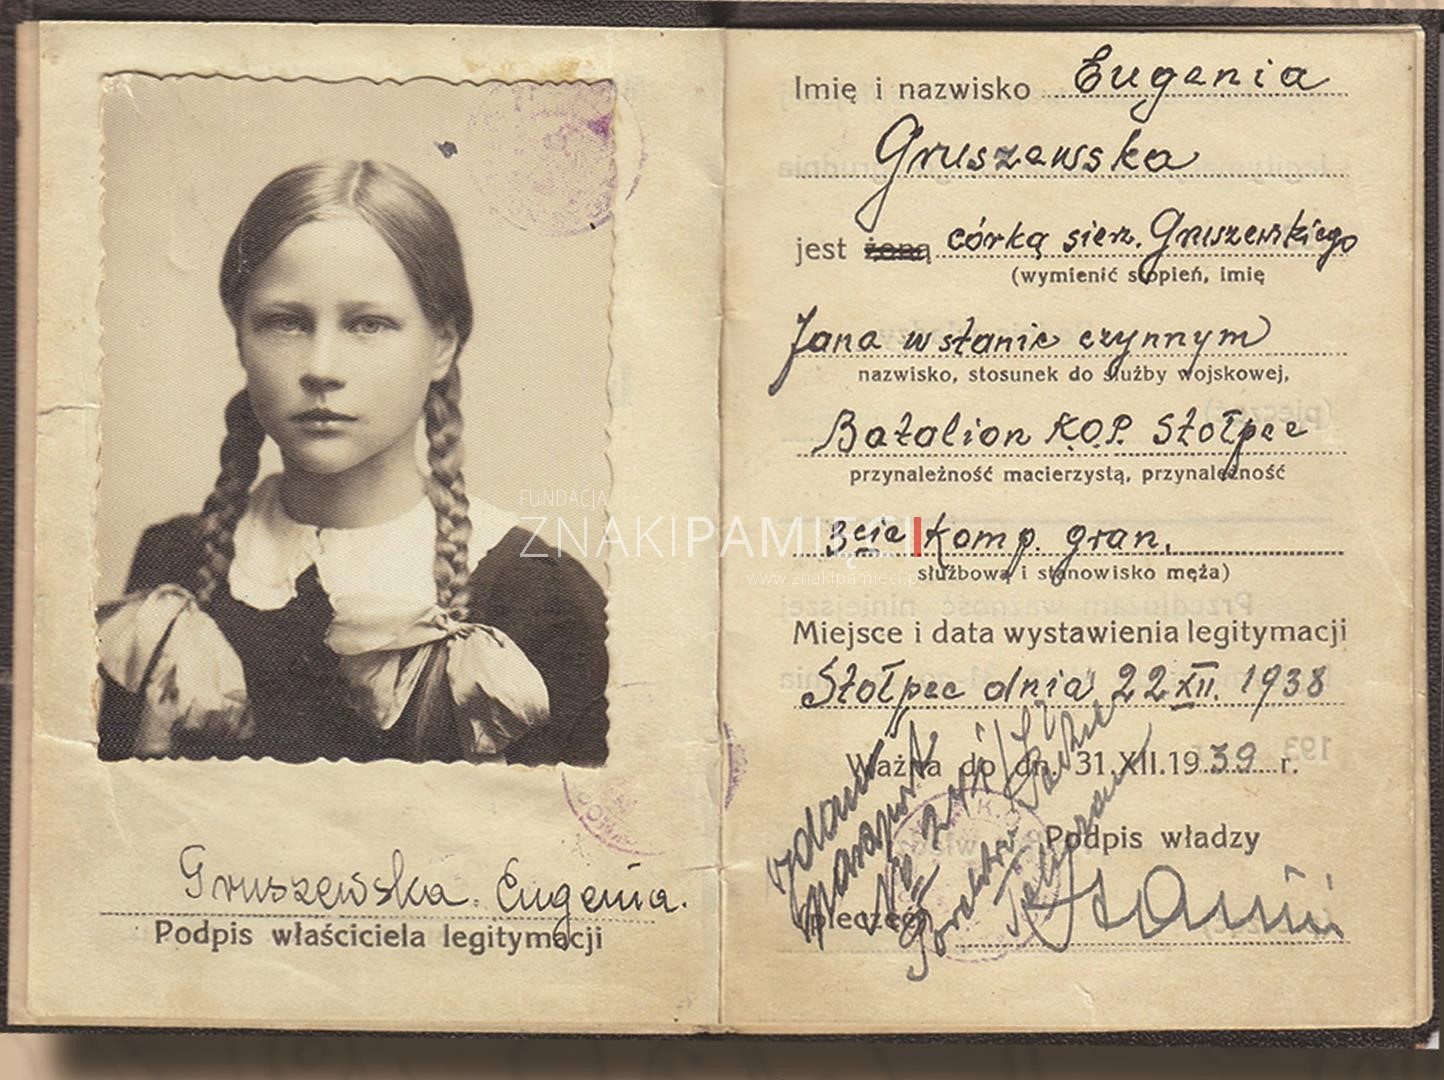 Gruszewska. Eugenia.
Podpis właściciela legitymacji
Imię i nazwisko Eugenia
Gruszewska
jest żoną córką sierż. Gruszewskiego
(wymienić stopień, imię
Jana w stanie czynnym
nazwisko, stosunek do służby wojskowej,
Batalion K.O.P. Stołpce
przynależność macierzystą, przynależność
3cia Komp. gran.
służbową i stanowisko męża)
Miejsce i data wystawienia legitymacji
Stołpce dnia 22 XII. 1938
Ważna do dn. 31.XII.1939 r.
Podpis władzy
(pieczęć)
FUNDACJA
ZNAKI PAMIĘCI
www.znakipamieci.p